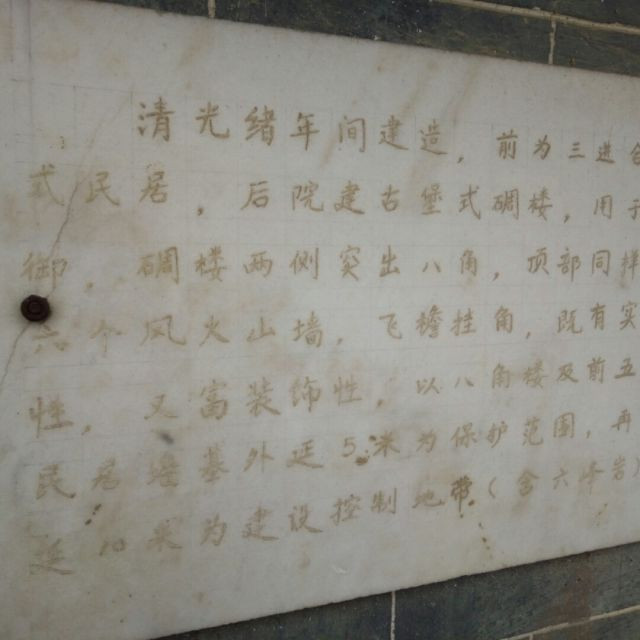 清光绪年间建造，前为三进
式民居，后院建古堡式碉楼，用于
御，碉楼两侧突出八角，顶部同样
六个风火山墙，飞檐挂角，既有实
性，又富装饰性，以八角楼及前五
民居墙基外延5米为保护范围，再
延 米为建设控制地带（含六